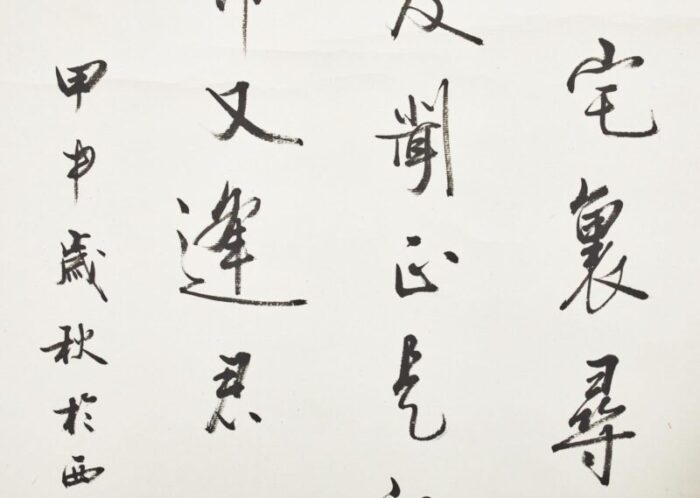 宅裏尋
聞正是
又逢君
甲申歲秋於西